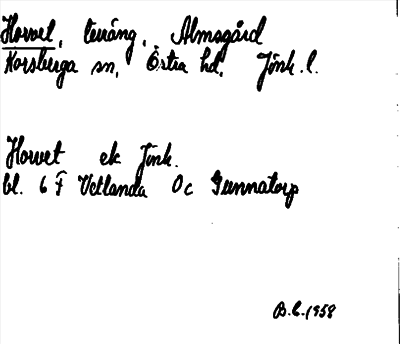 Hovvel, tenäng, Almsgård
Korsberga sn, Östra hd, Jönk. l.
Howet ek Jönk.
bl. 6 F Vetlanda Oc Gunnatorp
B.C. 1958